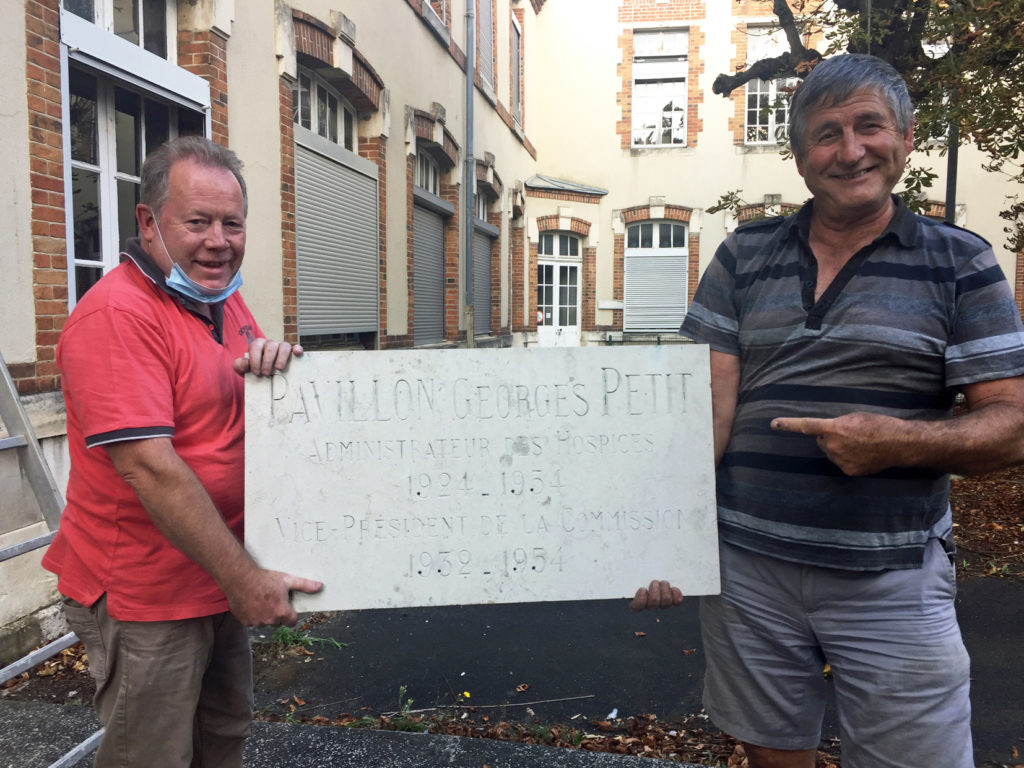 PAVILLON GEORGES PETIT
ADMINISTRATEUR DES HOSPICES
1924_1954
VICE-PRÉSIDENT DE LA COMMISSION
1932_1954